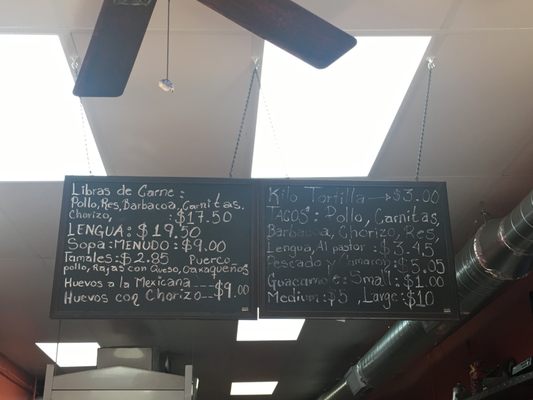 Libras de Carne:
Pollo, Res, Barbacoa, Carnitas.
Chorizo, : $17.50
LENGUA: $19.50
Sopa: MENUDO: $9.00
Tamales: $2.85 Puerco
pollo, Rajas con Queso, Oaxaqueños
Huevos a la Mexicana
Huevos con Chorizo -- $9.00
Kilo Tortilla → $3.00
TACOS: Pollo, Carnitas,
Barbacoa, Chorizo, Res,
Lengua, Al pastor : $3.45
Pescado y Camarones
Guacamole: Small: $1.00
Medium: $5, Large: $10